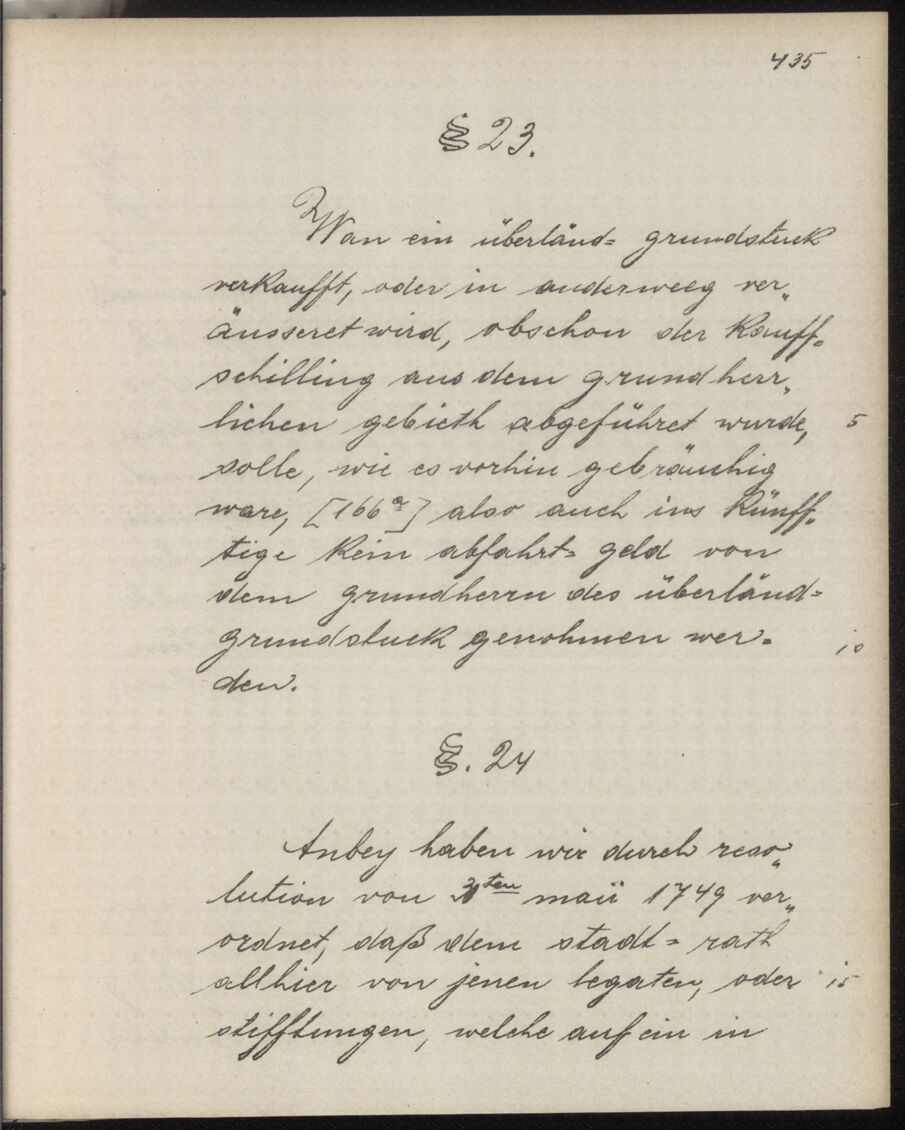 435
§ 23.
Wan ein überländ= grundstuck
verkaufft, oder in anderweeg ver„
äusseret wird, obschon der kauff„
schilling aus dem grundherr„
lichen gebieth abgeführet wurde, 5
solle, wie es vorhin gebräuchig
ware, [166ª] also auch ins künff„
tige kein abfahrt= geld von
dem grundherrn des überländ=
grundstuck genohmen wer= 10
den.
§. 24
Anbey haben wir durch reso„
lution von ten maii 1749 ver„
ordnet, daß dem stadt= rath
allhier von jenen legaten, oder 15
stifftungen, welche auf ein in